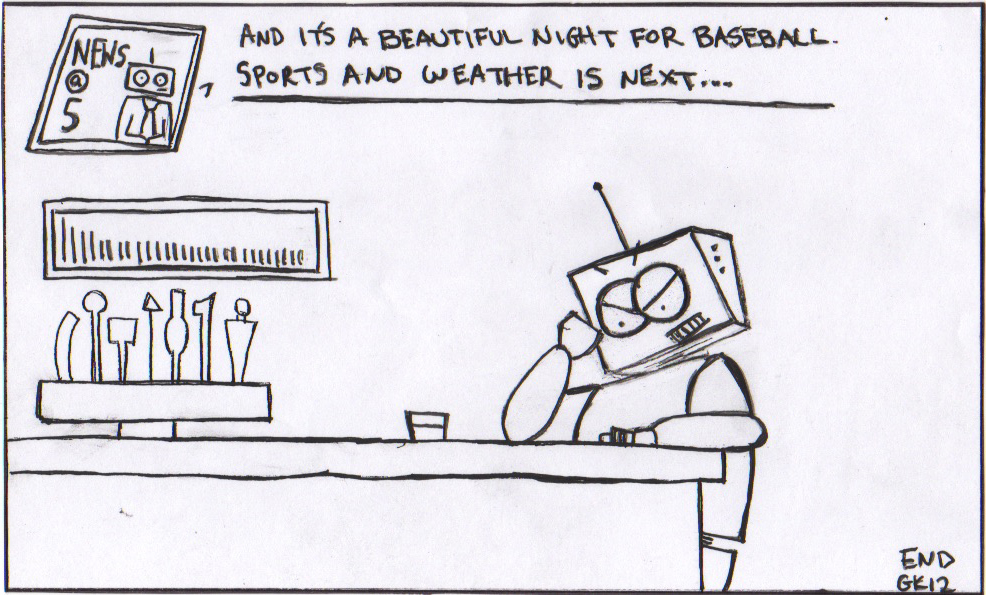 NEWS
@
5
AND IT'S A BEAUTIFUL NIGHT FOR BASEBALL.
SPORTS AND WEATHER IS NEXT...
END
GK12